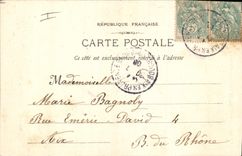 I
RÉPUBLIQUE FRANÇAISE
CARTE POSTALE
Ce côté est exclusivement réservé à l'adresse
Mademoiselle
Marie Bagnoly
Rue Emérie-David 4
Aix B. du Rhône